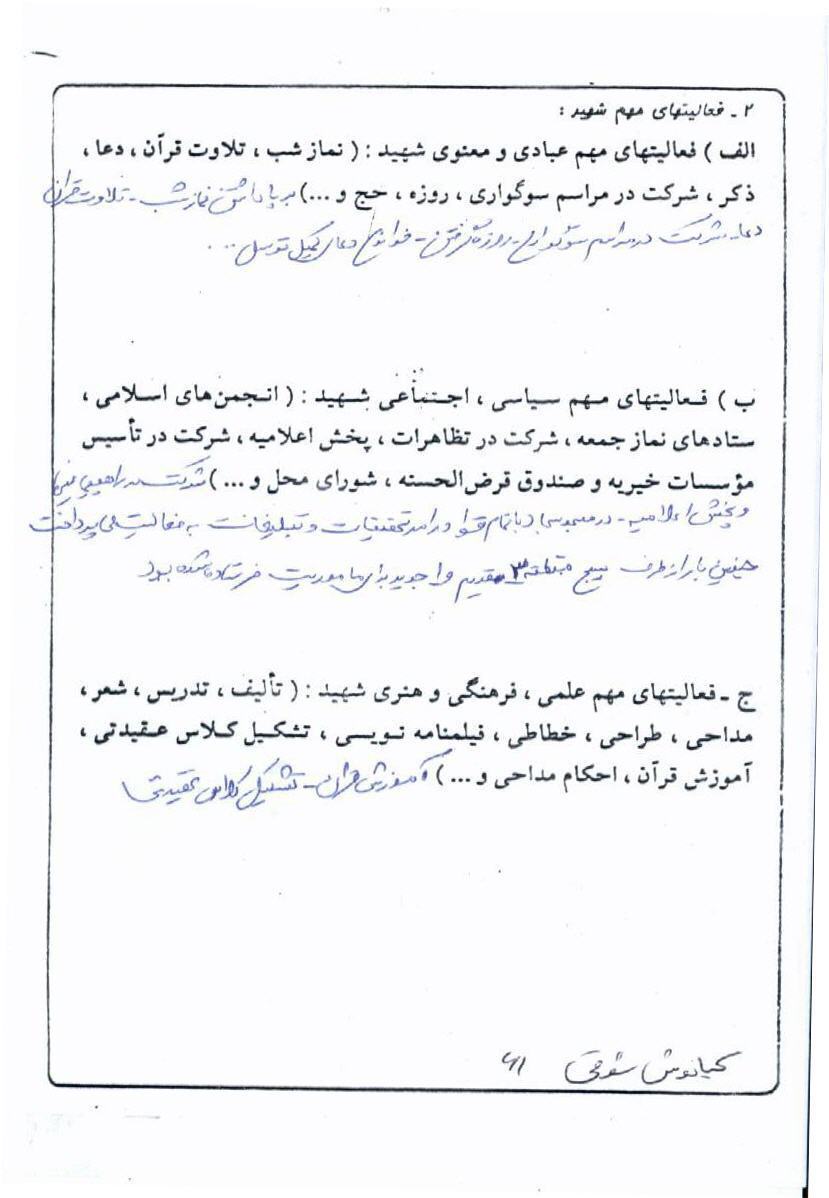 ۲ ـ فعالیتهای مهم شهید :
الف ) فعالیتهای مهم عبادی و معنوی شهید : ( نماز شب ، تلاوت قرآن ، دعا ،
ذکر ، شرکت در مراسم سوگواری ، روزه ، حج و ...) برپا داشتن نماز شب ـ تلاوت قرآن
دعا ـ شرکت در مراسم سوگواری ـ روزه گرفتن ـ دعای کمیل توسل ...
ب ) فعالیتهای مهم سیاسی ، اجتماعی شهید : ( انجمن‌های اسلامی ،
ستادهای نماز جمعه ، شرکت در تظاهرات ، پخش اعلامیه ، شرکت در تأسیس
مؤسسات خیریه و صندوق قرض‌الحسنه ، شورای محل و ...) شرکت در راهپیمایی‌ها
و پخش اعلامیه ـ در مسجد با تمام قوا در امد تحقیقات و تبلیغات به فعالیت می پرداخت
چندین بار از طرف بسیج منطقه ۳ برای ماموریت فرستاده شده بود
ج ـ فعالیتهای مهم علمی ، فرهنگی و هنری شهید : ( تألیف ، تدریس ، شعر ،
مداحی ، طراحی ، خطاطی ، فیلمنامه نویسی ، تشکیل کلاس عقیدتی ،
آموزش قرآن ، احکام مداحی و ...) آموزش قران ـ تشکیل کلاس عقیدتی
کیانوش شوقی